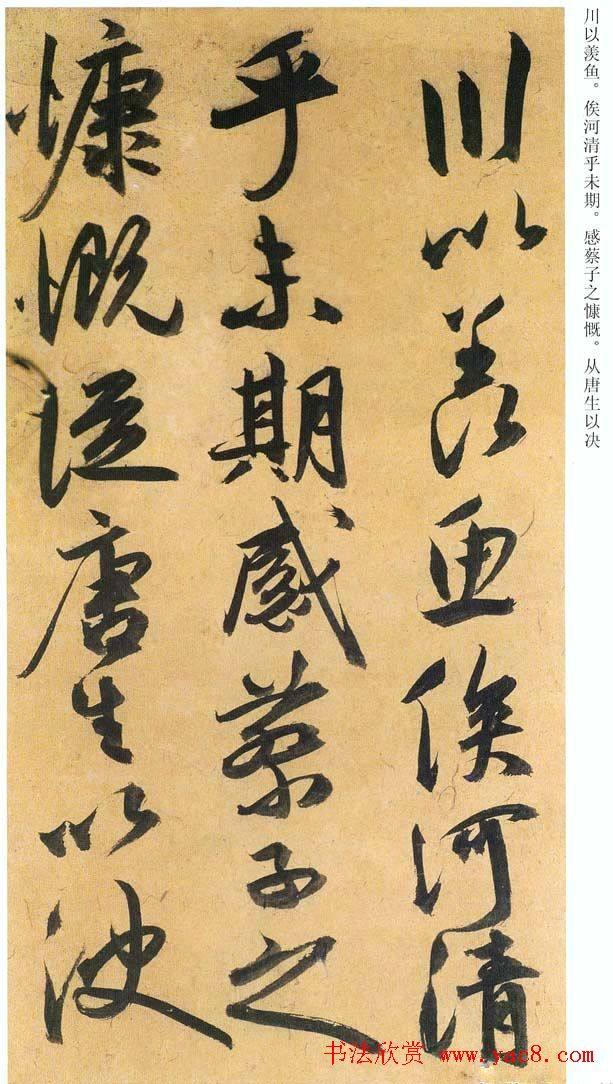 川以羡鱼。俟河清乎未期。感蔡子之慷慨。从唐生以决
川以羡魚俟河清
乎未期感蔡子之
慷慨從唐生以決
书法欣赏 www.yac8.com